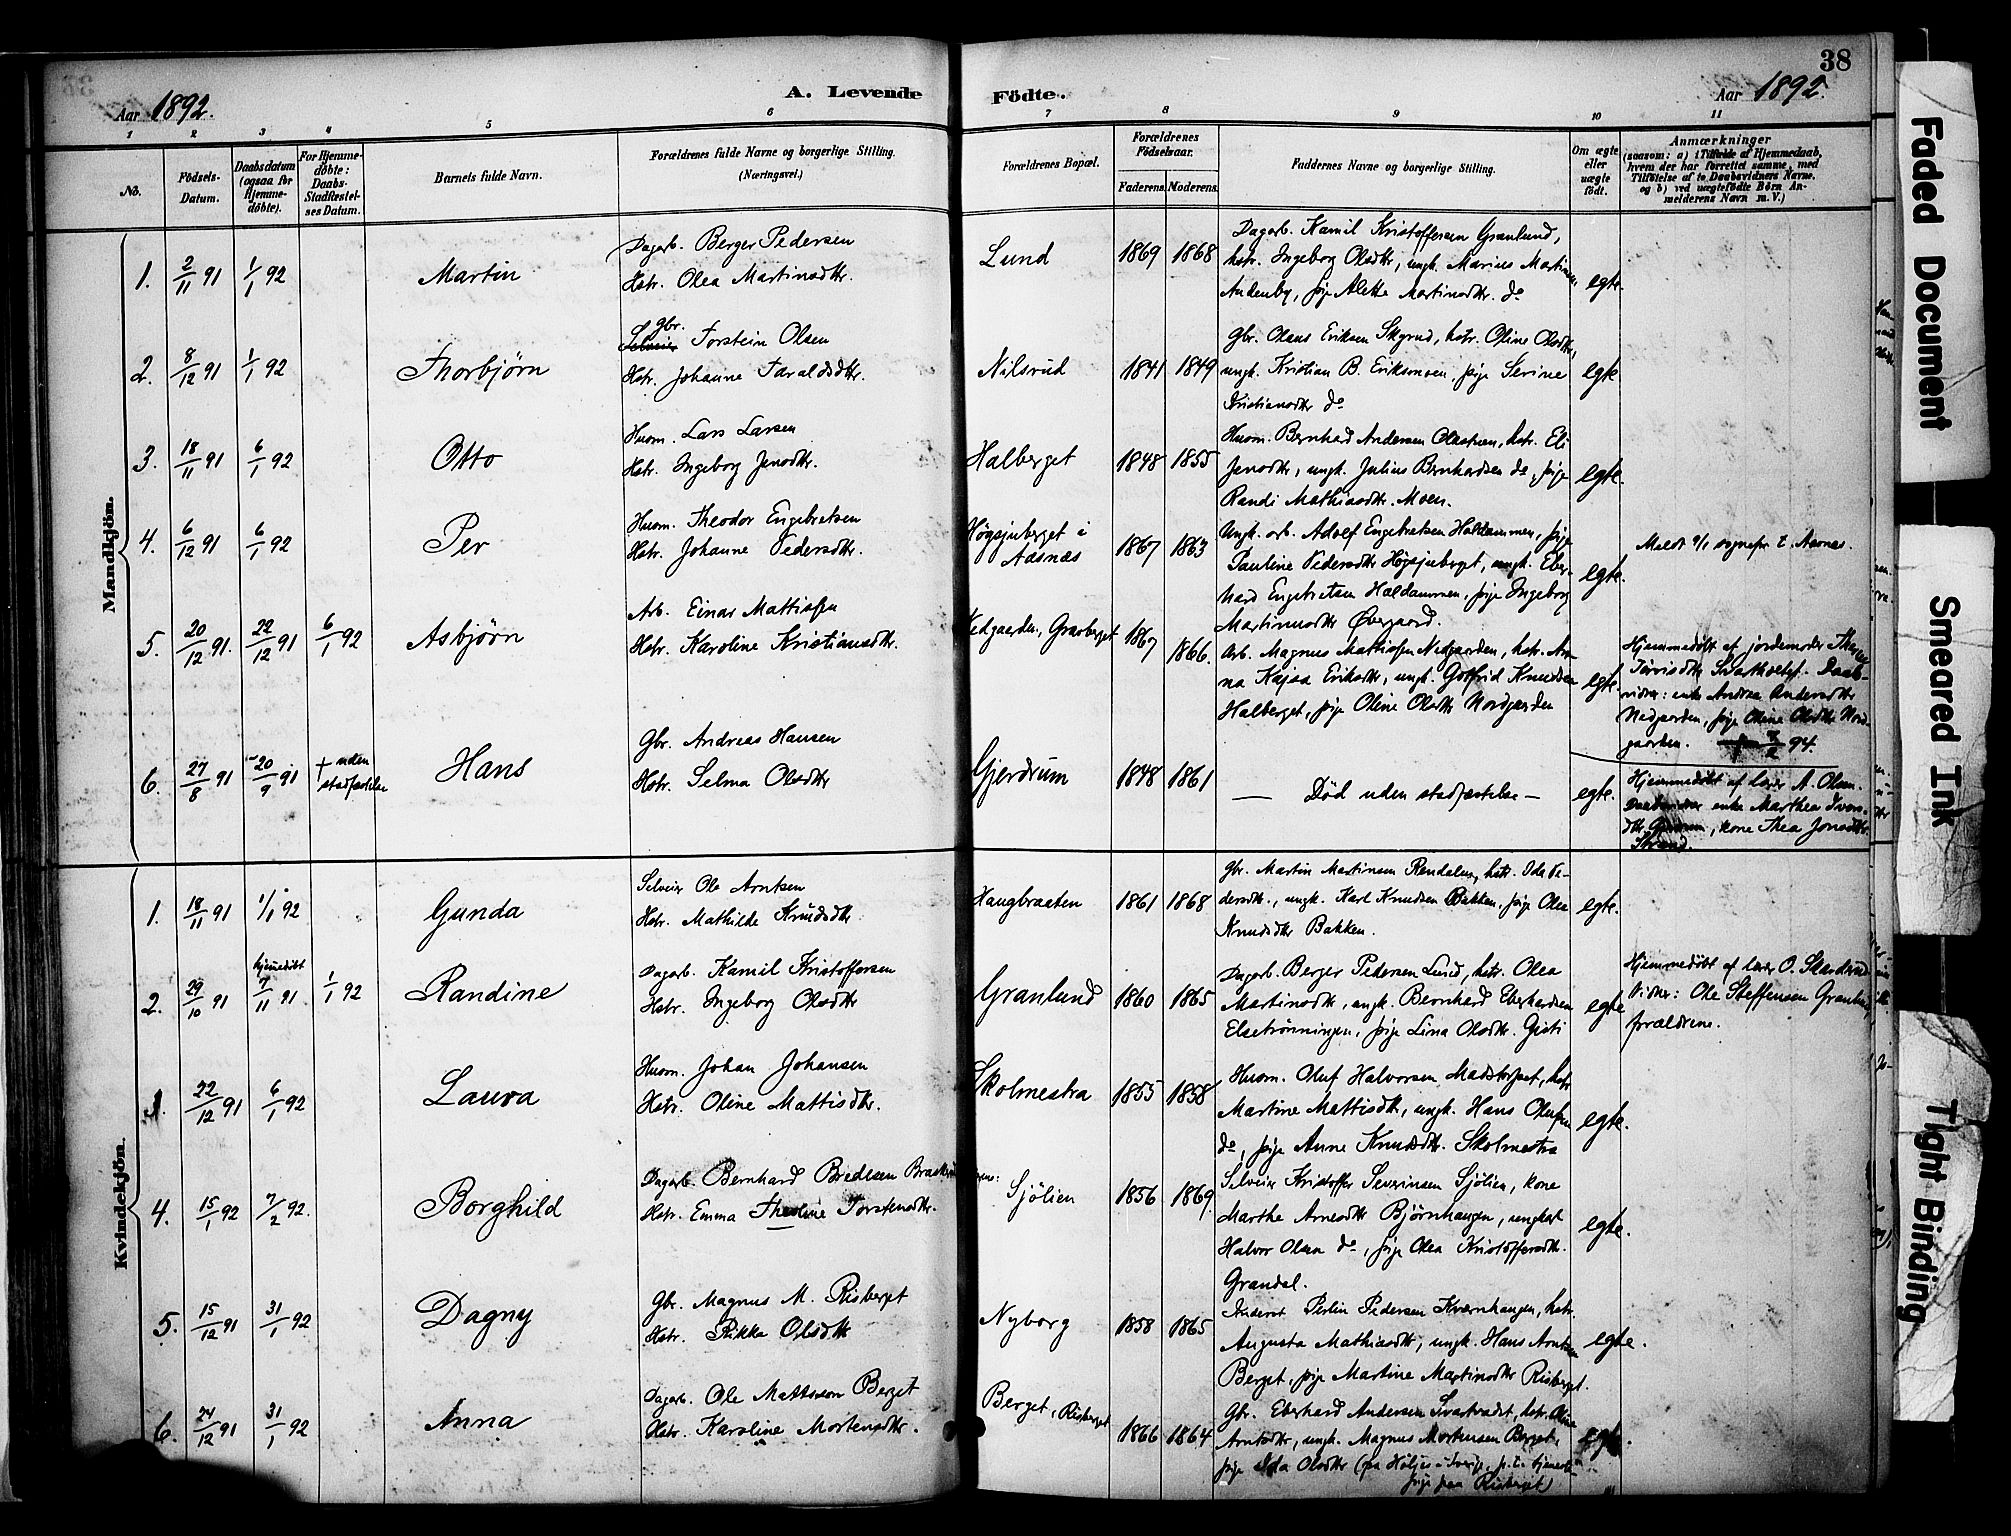 38
A. Levende Födte.
Aar 1892.
Aar 1892.
1 2 3 4 5 6 7 8 9 10 11
No.
Födsels-Datum.
Daabsdatum (ogsaa for Hjemme-döbte).
For Hjemme-döbte: Daabs-Stadfæstel-ses Datum.
Barnets fulde Navn.
Forældrenes fulde Navne og borgerlige Stilling. (Næringsvei.)
Forældrenes Bopæl.
Forældrenes Födselsaar.
Faderens. Moderens.
Faddernes Navne og borgerlige Stilling.
Om ægte eller uægte födt.
Anmærkninger
(saasom: a) i Tilfælde af Hjemmedaab,
hvem der har forrettet samme, med
Tilföielse af to Daabsvidners Navne,
og b) ved uægtefödte Börn An-
melderens Navn m. V.)
Mandkjön.
1. 2/11 91 1/1 92 Martin
Dagarb. Berger Pedersen
Hstr. Olea Martinsdtr.
Lund 1869 1868
Dagarb. Kamil Kristoffersen Granlund,
hstr. Ingeborg Olsdtr, ungk. Marius Martinsen
Andenby, pige Alette Martinsdtr. do
egte.
2. 8/12 91 1/1 92 Thorbjørn
gbr.
Selveier Torstein Olsen
Hstr. Johanne Taraldsdtr.
Nilsrud 1841 1849
Gbr. Olaus Eriksen Skyrud, hstr. Oline Olsdtr,
ungk. Kristian B. Eriksmoen, pige Serine
Kristiansdtr do
egte
3. 18/11 91 6/1 92 Otto
Husm. Lars Larsen
Hstr. Ingeborg Jensdtr.
Halberget 1848 1855
Husm. Bernhard Andersen, hstr. Eli
Jensdtr, ungk. Julius Bernhardsen do, pige
Randi Mathiasdtr. Moen.
egte.
4. 6/12 91 6/1 92 Per
Husm. Theodor Engebretsen
Hstr. Johanne Pedersdtr.
Høgsjuberget i
Aasnæs
1867 1863
Ungk. arb. Adolf Engebretsen Haldammen, pige
Pauline Pedersdtr Høgsjuberget, ungk. Eber-
hard Engebretsen Haldammen, pige Ingeborg
Martinusdtr Øbergaard.
egte.
Meldt 9/1 sognepr. t. Aasnæs.
5. 20/12 91. 22/12 91 6/1 92 Asbjørn
Arb. Einar Mattisen
Hstr. Karoline Kristiansdtr.
Nedgaarden, Gravberget 1867 1866.
Arb. Magnus Mattisen Nedgaarden, hstr. An-
na Kajsa Eriksdtr, ungk. Gotfrid Knudsen
Halberget, pige Oline Olsdtr Nordgarden
egte.
Hjemmedøbt af jordemoder
Svartholtet. Daabs-
vidner: enke Andrea Andersdtr
Nedgaarden, pige Oline Olsdtr Nord-
gaarden. 94.
6. 27/8 91 20/9 91 + uden
stadfæstelse
Hans
Gbr. Andreas Hansen
Hstr. Selma Olsdtr
Gjerdrum 1848 1861
— Død uden stadfæstelse —
egte.
Hjemmedøbt af lærer A. Olsen.
Daabsvidner enke Marthea Ivers-
dtr, kone Thea Jonsdtr
Strand.
Kvindekjön.
1. 18/11 91 1/1 92 Gunda
Selveier Ole Arntsen
Hstr. Mathilde Knudsdtr
Haugbraaten 1861 1868
gbr. Martin Martinsen Rendalen, hstr. Ida Pe-
dersdtr., ungk. Karl Knudsen Bakken, pige Olea
Knudsdtr Bakken.
egte.
2. 29/10 91 hjemmedøbt 7/11 91 1/1 92 Randine
Dagarb. Kamil Kristoffersen
Hstr. Ingeborg Olsdtr
Granlund 1860 1865
Dagarb. Berger Pedersen Lund, hstr. Olea
Martinsdtr, ungk. Bernhard Eberhardsen
Elsetrønningen, pige Lina Olsdtr. Gjøti
egte
Hjemmedøbt af lærer O. Skarderud
Vidner: Ole Steffensen Granlund,
forældrene.
3. 22/12 91 6/1 92 Laura
Husm. Johan Johansen
Hstr. Oline Mattisdtr.
Skolmestra 1855 1858
Husm. Oluf Halvorsen Madstorpet, hstr
Martine Mattisdtr, ungk. Hans Olufsen
do, pige Anne Knudsdtr. Skolmestra
egte.
4. 15/1 92 7/2 92. Borghild
Dagarb. Bernhard Bredesen
Hstr. Emma Theoline Torstensdtr.
Sjölien 1856 1869
Selveier Kristoffer Severinsen Sjölien, kone
Marthe Arnesdtr Bjørnhaugen, ungkarl
Halvor Olsen do, pige Olea Kristoffersdtr.
Grandal.
egte.
5. 15/12 91 31/1 92 Dagny
Gbr. Magnus M. Risberget
Hstr. Rikka Olsdtr
Nyborg 1858 1865
Inderst Perlin Pedersen Kværnhaugen, hstr.
Augusta Mathiasdtr, ungk. Hans Arntsen
Berget, pige Martine Martinsdtr Risberget.
egte.
6. 24/12 91 31/1 92 Anna
Dagarb. Ole Mattsson Berget
Hstr. Karoline Mortensdtr.
Berget, Risberget 1866 1864
Gbr. Eberhard Andersen Svartvadet, hstr. Oline
Arntsdtr, ungk. Magnus Mortensen Berget,
pige Ida Olsdtr (fra Höljes i Sverige, p.t. tjeneste-
pige paa Risberget)
egte.
Faded Document
Smeared Ink
Tight Binding